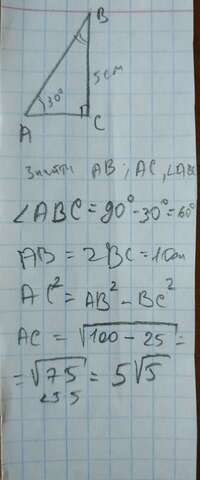 B
30°
5см
A
C
Знайти AB; AC, ∠ABC
∠ABC = 90° - 30° = 60°
AB = 2BC = 10см
AC² = AB² - BC²
AC = √100 - 25 =
= √75 = 5√5